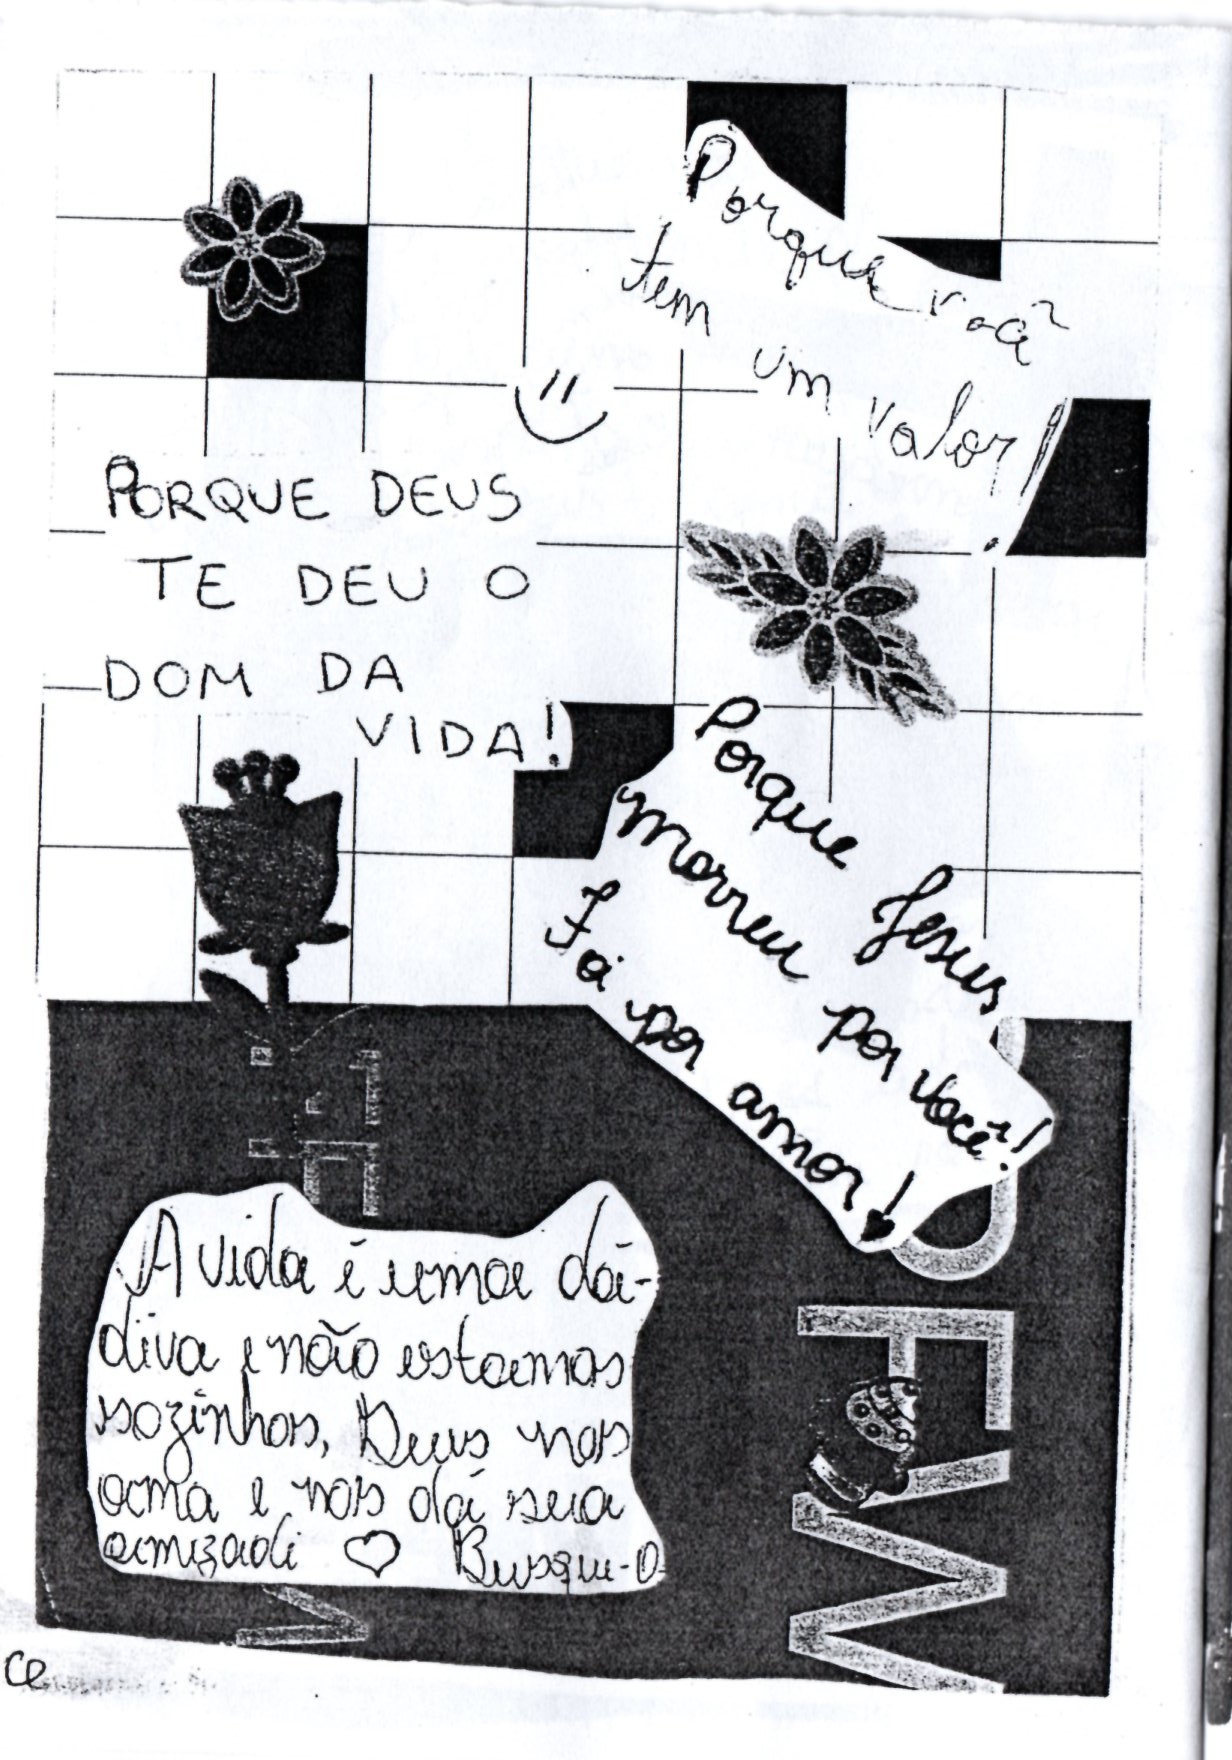 Porque você
tem um valor!
PORQUE DEUS
TE DEU O
DOM DA
VIDA!
Porque Jesus
morreu por você!
Foi por amor!
A vida é uma dá-
diva e não estamos
sozinhos, Deus nos
ama e nos dá sua
amizade ♡ Busque-o